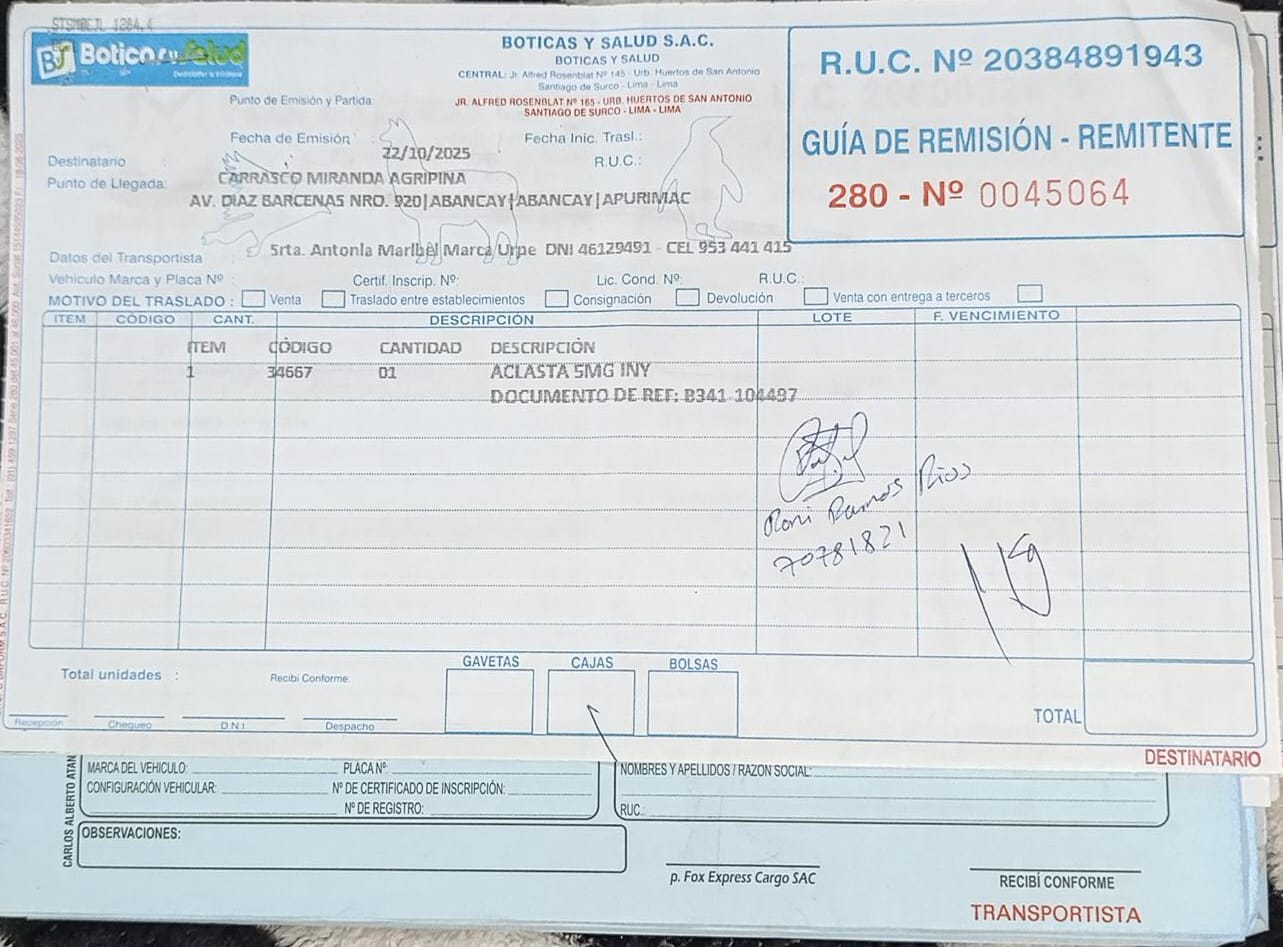 STSMBEJL 1284.4
BS Boticas y Salud
BOTICAS Y SALUD S.A.C.
BOTICAS Y SALUD
CENTRAL: Jr. Alfred Rosenblat Nº 145 - Urb. Huertos de San Antonio
Santiago de Surco - Lima - Lima
Punto de Emisión y Partida:
JR. ALFRED ROSENBLAT Nº 165 - URB. HUERTOS DE SAN ANTONIO
SANTIAGO DE SURCO - LIMA - LIMA
R.U.C. Nº 20384891943
GUÍA DE REMISIÓN - REMITENTE
280 - Nº 0045064
Fecha de Emisión : 22/10/2025 Fecha Inic. Trasl.:
Destinatario : CARRASCO MIRANDA AGRIPINA R.U.C.:
Punto de Llegada: AV. DIAZ BARCENAS NRO. 920|ABANCAY|ABANCAY|APURIMAC
Datos del Transportista Srta. Antonia Maribel Marca Urpe DNI 46129491 - CEL 953 441 415
Vehiculo Marca y Placa Nº : Certif. Inscrip. Nº: Lic. Cond. Nº: R.U.C.:
MOTIVO DEL TRASLADO : Venta Traslado entre establecimientos Consignación Devolución Venta con entrega a terceros
ITEM CÓDIGO CANT. DESCRIPCIÓN LOTE F. VENCIMIENTO
ITEM CÓDIGO CANTIDAD DESCRIPCIÓN
1 34667 01 ACLASTA 5MG INY
DOCUMENTO DE REF: B341 104497
Roni Ramos Rios
70781821
GAVETAS CAJAS BOLSAS
Total unidades : Recibi Conforme:
Recepción Chequeo D.N.I. Despacho
TOTAL
DESTINATARIO
CARLOS ALBERTO ATAN
MARCA DEL VEHICULO: PLACA Nº
CONFIGURACIÓN VEHICULAR: Nº DE CERTIFICADO DE INSCRIPCIÓN:
Nº DE REGISTRO:
NOMBRES Y APELLIDOS / RAZON SOCIAL:
RUC.:
OBSERVACIONES:
p. Fox Express Cargo SAC
RECIBÍ CONFORME
TRANSPORTISTA